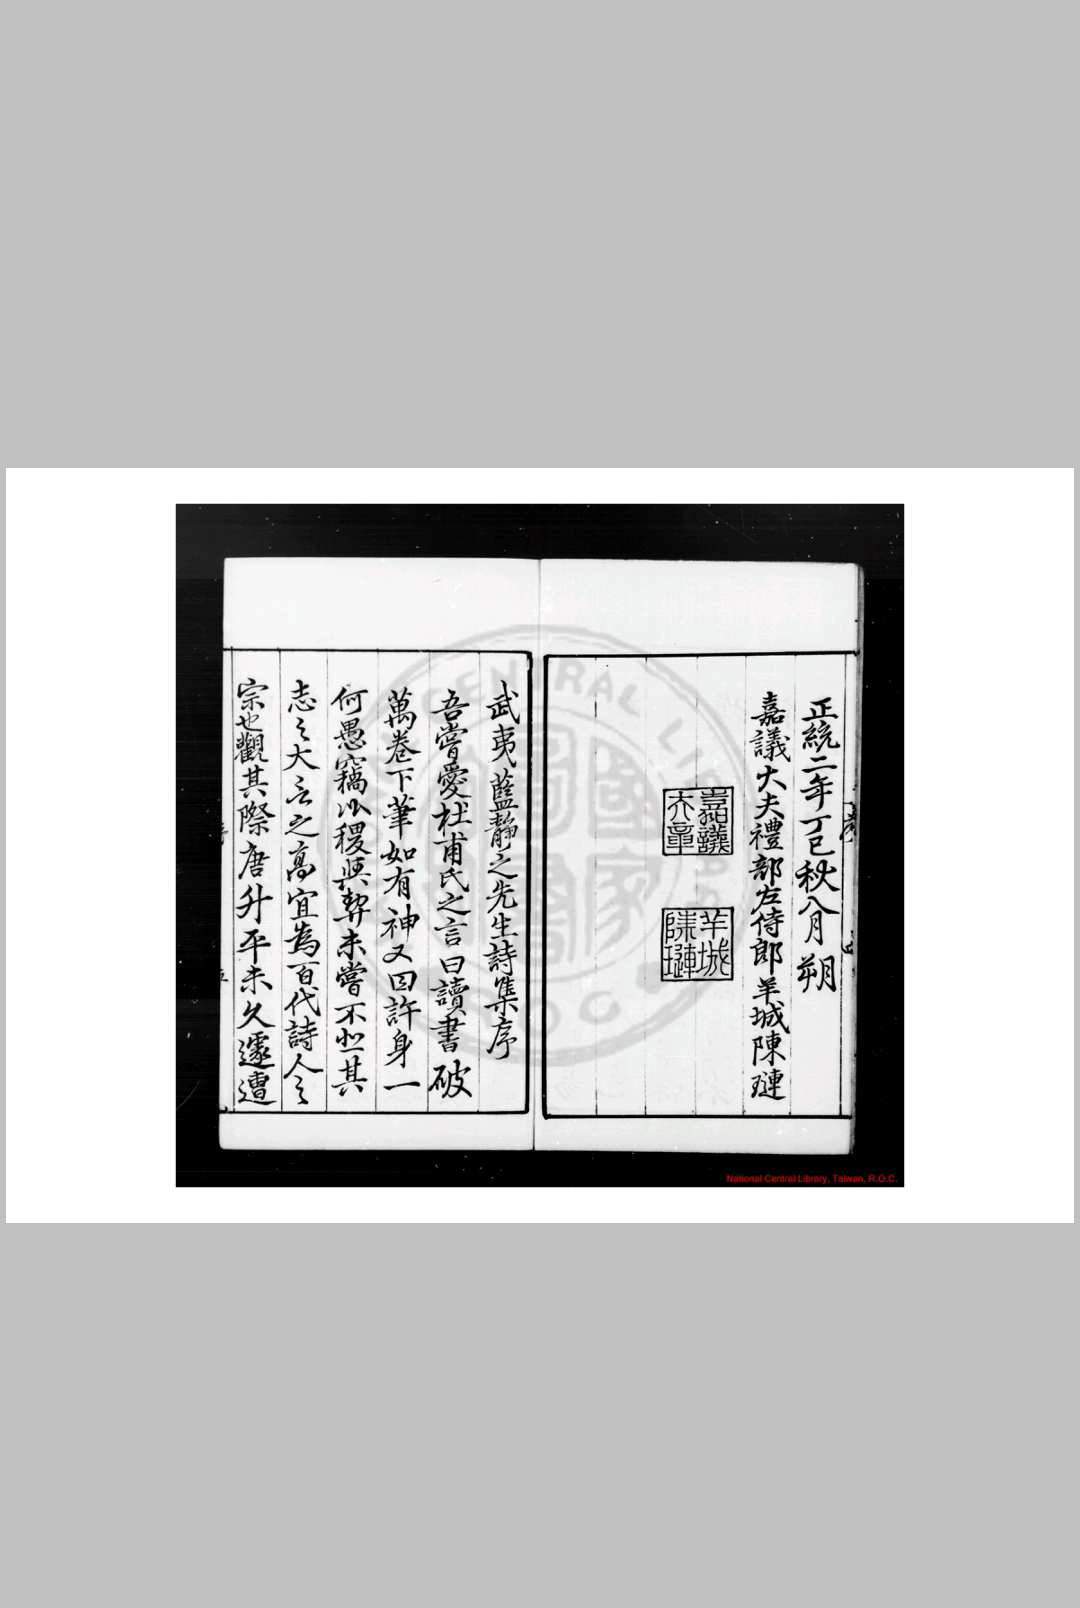 正統二年丁巳秋八月朔
嘉議大夫禮部左侍郎羊城陳璉
嘉議
大夫章
羊城
陳璉
武夷藍靜之先生詩集序
吾嘗愛杜甫氏之言曰讀書破
萬卷下筆如有神又曰許身一
何愚竊以稷與契未嘗不悲其
志之大言之高宜為百代詩人之
宗也觀其際唐升平未久遽遭
National Central Library, Taiwan, R.O.C.